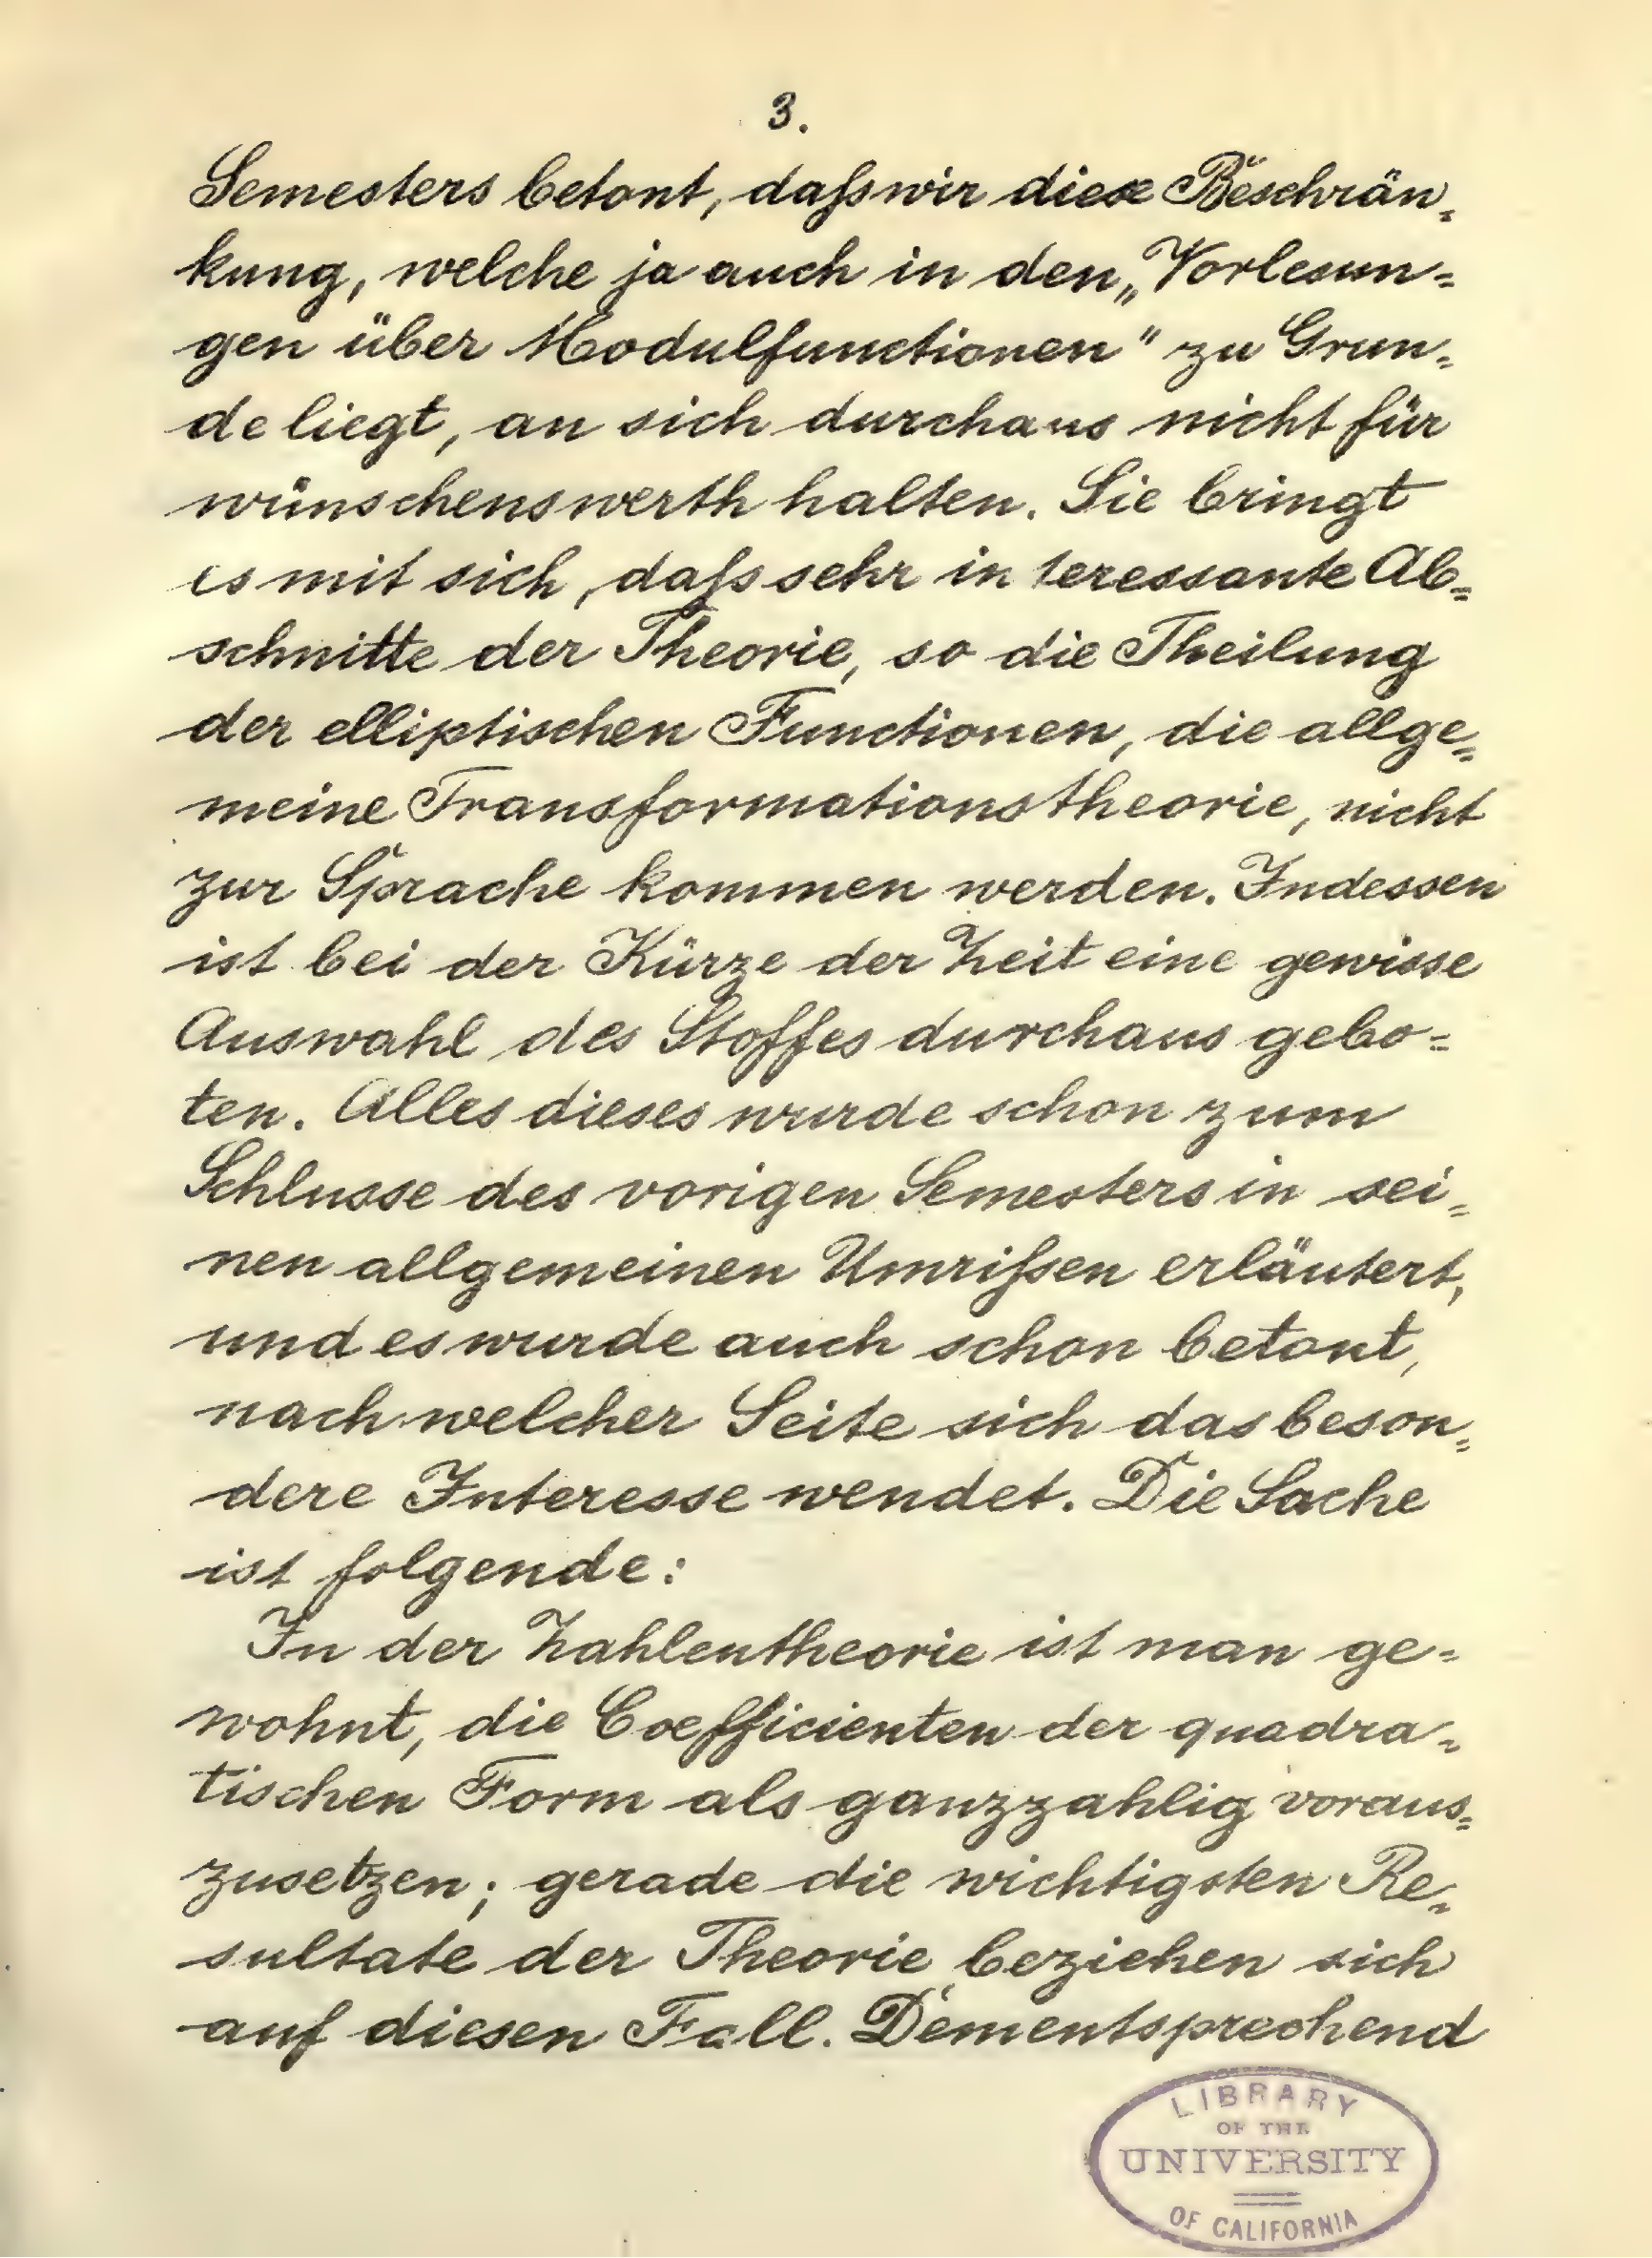 3.
Semesters betont, daß wir diese Beschrän=
kung, welche ja auch in den „Vorlesun=
gen über Modulfunctionen" zu Grun=
de liegt, an sich durchaus nicht für
wünschenswerth halten. Sie bringt
es mit sich, daß sehr interessante Ab=
schnitte der Theorie, so die Theilung
der elliptischen Functionen, die allge=
meine Transformationstheorie, nicht
zur Sprache kommen werden. Indessen
ist bei der Kürze der Zeit eine gewisse
Auswahl des Stoffes durchaus gebo=
ten. Alles dieses wurde schon zum
Schlusse des vorigen Semesters in sei=
nen allgemeinen Umrißen erläutert,
und es wurde auch schon betont,
nach welcher Seite sich das beson=
dere Interesse wendet. Die Sache
ist folgende:
In der Zahlentheorie ist man ge=
wohnt, die Coefficienten der quadra=
tischen Form als ganzzahlig voraus=
zusetzen; gerade die wichtigsten Re=
sultate der Theorie beziehen sich
auf diesen Fall. Dementsprechend
LIBRARY
OF THE
UNIVERSITY
OF CALIFORNIA